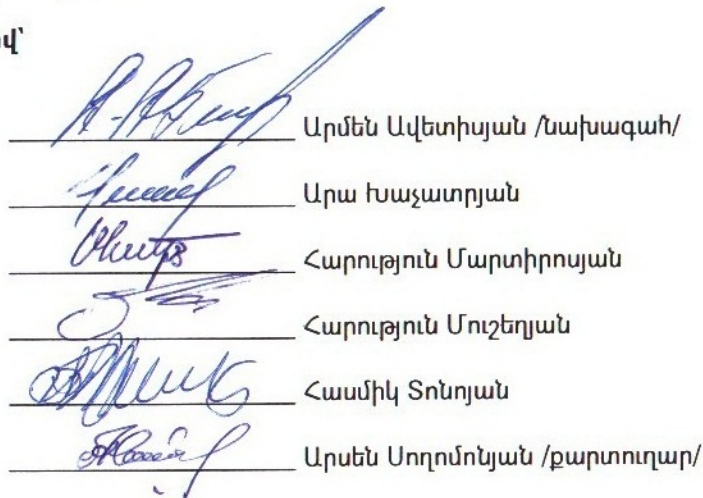 Արմեն Ավետիսյան /նախագահ/
Արա Խաչատրյան
Հարություն Մարտիրոսյան
Հարություն Մուշեղյան
Հասմիկ Տոնոյան
Արսեն Սողոմոնյան /քարտուղար/